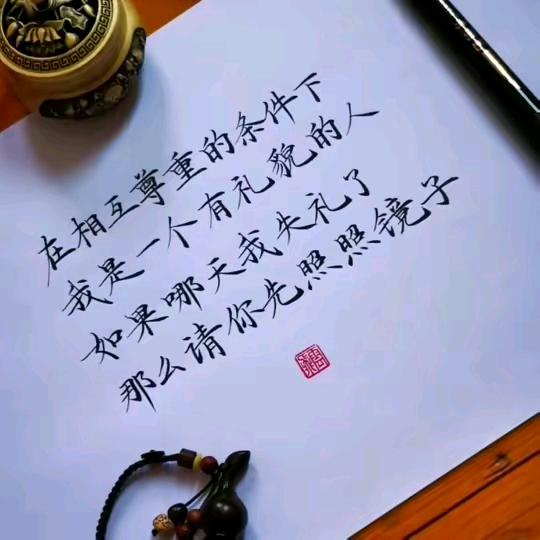 在相互尊重的条件下
我是一个有礼貌的人
如果哪天我失礼了
那么请你先照照镜子